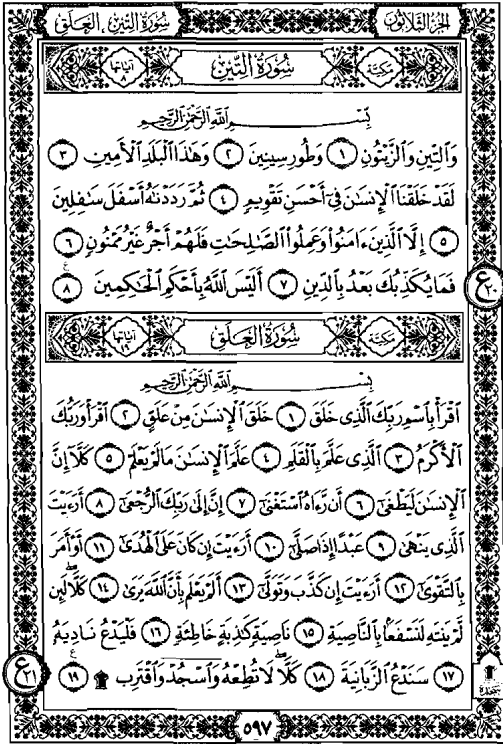 سُورَةُ التِّين ، العَلَق
الجُزْءُ الثَّلَاثُونَ
مَكِّيَّة سُورَةُ التِّين آيَاتُهَا ٨
بِسْمِ ٱللَّهِ ٱلرَّحْمَٰنِ ٱلرَّحِيمِ
وَٱلتِّينِ وَٱلزَّيْتُونِ ١ وَطُورِ سِينِينَ ٢ وَهَٰذَا ٱلْبَلَدِ ٱلْأَمِينِ ٣
لَقَدْ خَلَقْنَا ٱلْإِنسَٰنَ فِىٓ أَحْسَنِ تَقْوِيمٍ ٤ ثُمَّ رَدَدْنَٰهُ أَسْفَلَ سَٰفِلِينَ
٥ إِلَّا ٱلَّذِينَ ءَامَنُوا۟ وَعَمِلُوا۟ ٱلصَّٰلِحَٰتِ فَلَهُمْ أَجْرٌ غَيْرُ مَمْنُونٍ ٦
فَمَا يُكَذِّبُكَ بَعْدُ بِٱلدِّينِ ٧ أَلَيْسَ ٱللَّهُ بِأَحْكَمِ ٱلْحَٰكِمِينَ ٨
ع ٢٠
مَكِّيَّة سُورَةُ العَلَق آيَاتُهَا ١٩
بِسْمِ ٱللَّهِ ٱلرَّحْمَٰنِ ٱلرَّحِيمِ
ٱقْرَأْ بِٱسْمِ رَبِّكَ ٱلَّذِى خَلَقَ ١ خَلَقَ ٱلْإِنسَٰنَ مِنْ عَلَقٍ ٢ ٱقْرَأْ وَرَبُّكَ
ٱلْأَكْرَمُ ٣ ٱلَّذِى عَلَّمَ بِٱلْقَلَمِ ٤ عَلَّمَ ٱلْإِنسَٰنَ مَا لَمْ يَعْلَمْ ٥ كَلَّآ إِنَّ
ٱلْإِنسَٰنَ لَيَطْغَىٰٓ ٦ أَن رَّءَاهُ ٱسْتَغْنَىٰٓ ٧ إِنَّ إِلَىٰ رَبِّكَ ٱلرُّجْعَىٰٓ ٨ أَرَءَيْتَ
ٱلَّذِى يَنْهَىٰ ٩ عَبْدًا إِذَا صَلَّىٰٓ ١٠ أَرَءَيْتَ إِن كَانَ عَلَى ٱلْهُدَىٰٓ ١١ أَوْ أَمَرَ
بِٱلتَّقْوَىٰٓ ١٢ أَرَءَيْتَ إِن كَذَّبَ وَتَوَلَّىٰٓ ١٣ أَلَمْ يَعْلَم بِأَنَّ ٱللَّهَ يَرَىٰ ١٤ كَلَّا لَئِن
لَّمْ يَنتَهِ لَنَسْفَعًۢا بِٱلنَّاصِيَةِ ١٥ نَاصِيَةٍ كَٰذِبَةٍ خَاطِئَةٍ ١٦ فَلْيَدْعُ نَادِيَهُۥ
١٧ سَنَدْعُ ٱلزَّبَانِيَةَ ١٨ كَلَّا لَا تُطِعْهُ وَٱسْجُدْ وَٱقْتَرِب ۩ ١٩
ع ٢١
سجدة
٥٩٧